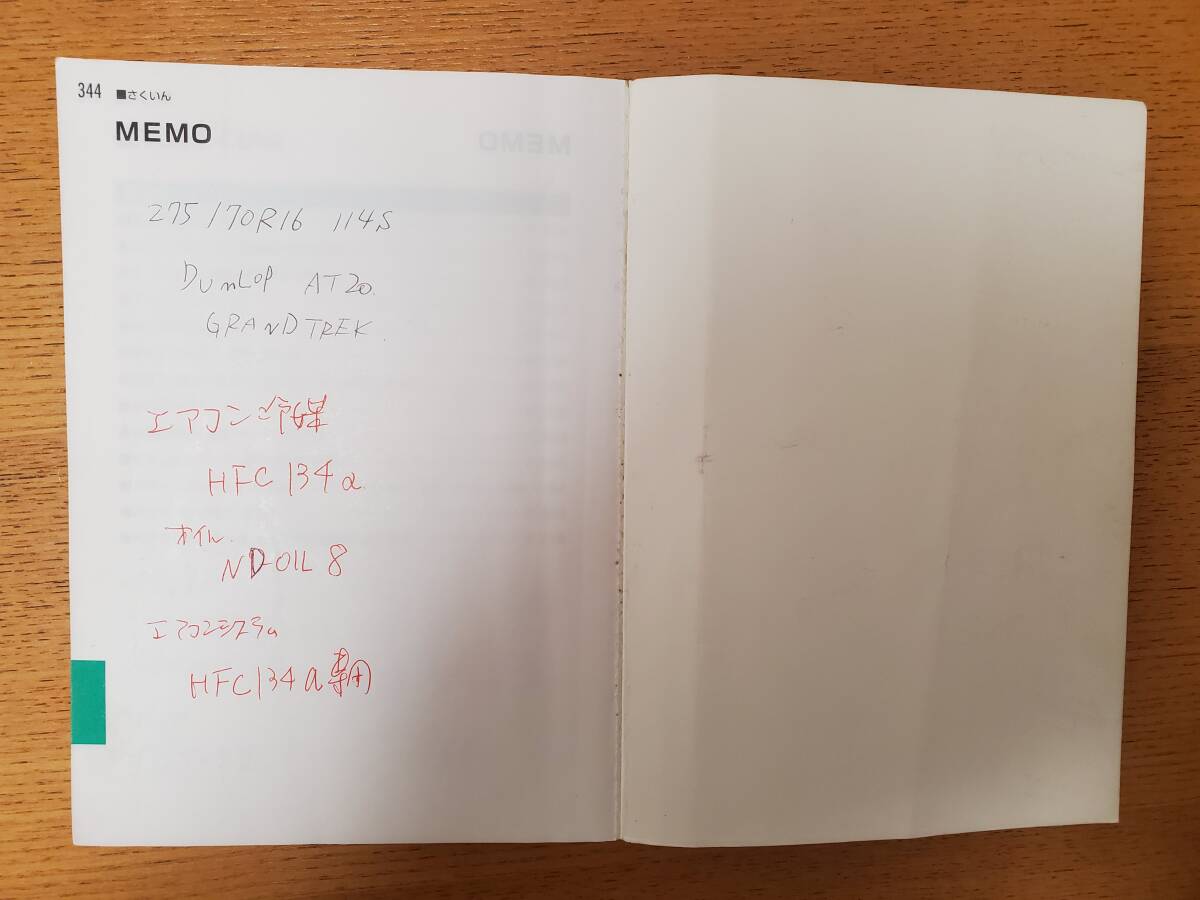 344 ■さくいん
MEMO
275/70R16 114S
DUNLOP AT20.
GRANDTREK.
エアコン冷媒
HFC 134a
オイル.
ND-OIL 8
エアコンシステム
HFC134a専用